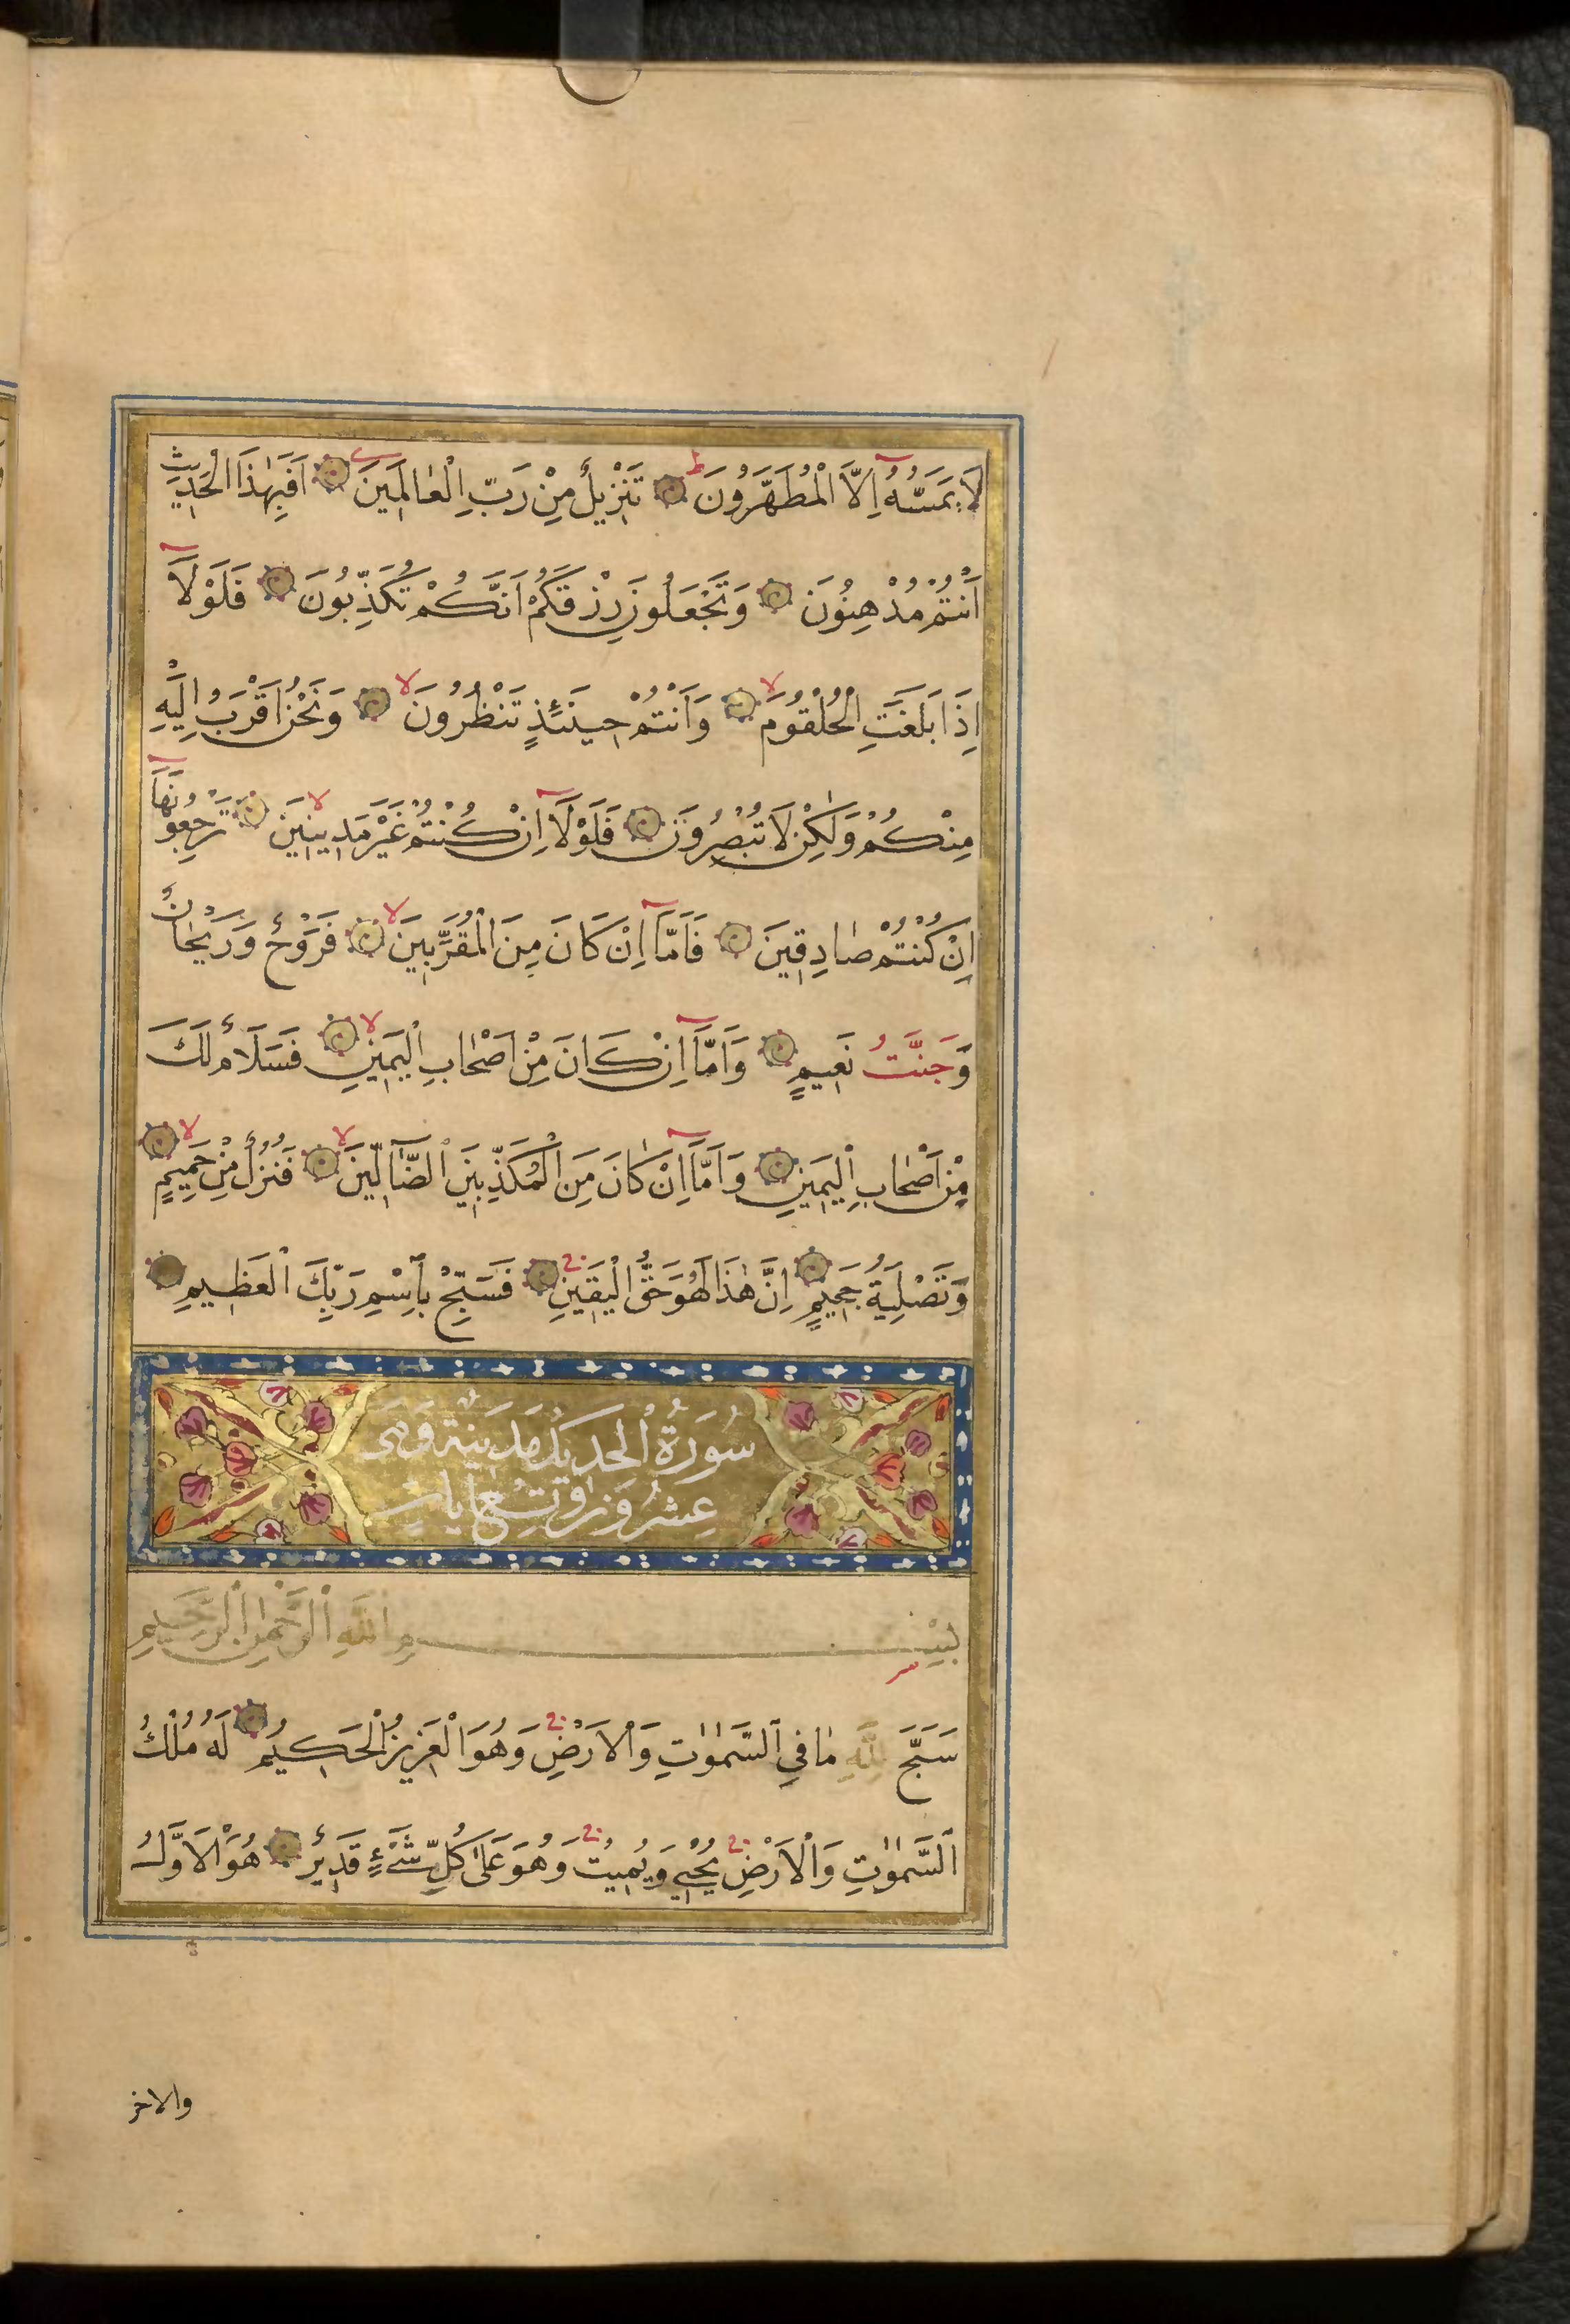 لَا يَمَسُّهُٓ اِلَّا الْمُطَهَّرُونَ ط تَنْزِيلٌ مِنْ رَبِّ الْعَالَمِينَ اَفَبِهٰذَا الْحَدِيثِ
اَنْتُمْ مُدْهِنُونَ وَتَجْعَلُونَ رِزْقَكُمْ اَنَّكُمْ تُكَذِّبُونَ فَلَوْلَٓا
اِذَا بَلَغَتِ الْحُلْقُومَ لا وَاَنْتُمْ حِينَئِذٍ تَنْظُرُونَ لا وَنَحْنُ اَقْرَبُ اِلَيْهِ
مِنْكُمْ وَلٰكِنْ لَا تُبْصِرُونَ فَلَوْلَٓا اِنْ كُنْتُمْ غَيْرَ مَدِينِينَ لا تَرْجِعُونَهَٓا
اِنْ كُنْتُمْ صَادِقِينَ فَاَمَّٓا اِنْ كَانَ مِنَ الْمُقَرَّبِينَ لا فَرَوْحٌ وَرَيْحَانٌ
وَجَنَّتُ نَعِيمٍ وَاَمَّٓا اِنْ كَانَ مِنْ اَصْحَابِ الْيَمِينِ لا فَسَلَامٌ لَكَ
مِنْ اَصْحَابِ الْيَمِينِ وَاَمَّٓا اِنْ كَانَ مِنَ الْمُكَذِّبِينَ الضَّٓالِّينَ لا فَنُزُلٌ مِنْ حَمِيمٍ لا
وَتَصْلِيَةُ جَحِيمٍ اِنَّ هٰذَا لَهُوَ حَقُّ الْيَقِينِ ج فَسَبِّحْ بِاسْمِ رَبِّكَ الْعَظِيمِ
سُورَةُ الْحَدِيدِ مَدِينَةٌ وَهِيَ
عِشْرُونَ وَتِسْعُ اٰيَاتٍ
بِسْمِ اللّٰهِ الرَّحْمٰنِ الرَّحِيمِ
سَبَّحَ لِلّٰهِ مَا فِي السَّمٰوَاتِ وَالْاَرْضِ ج وَهُوَ الْعَزِيزُ الْحَكِيمُ لَهُ مُلْكُ
السَّمٰوَاتِ وَالْاَرْضِ ج يُحْيِي وَيُمِيتُ ج وَهُوَ عَلٰى كُلِّ شَيْءٍ قَدِيرٌ هُوَ الْاَوَّلُ
والاخر